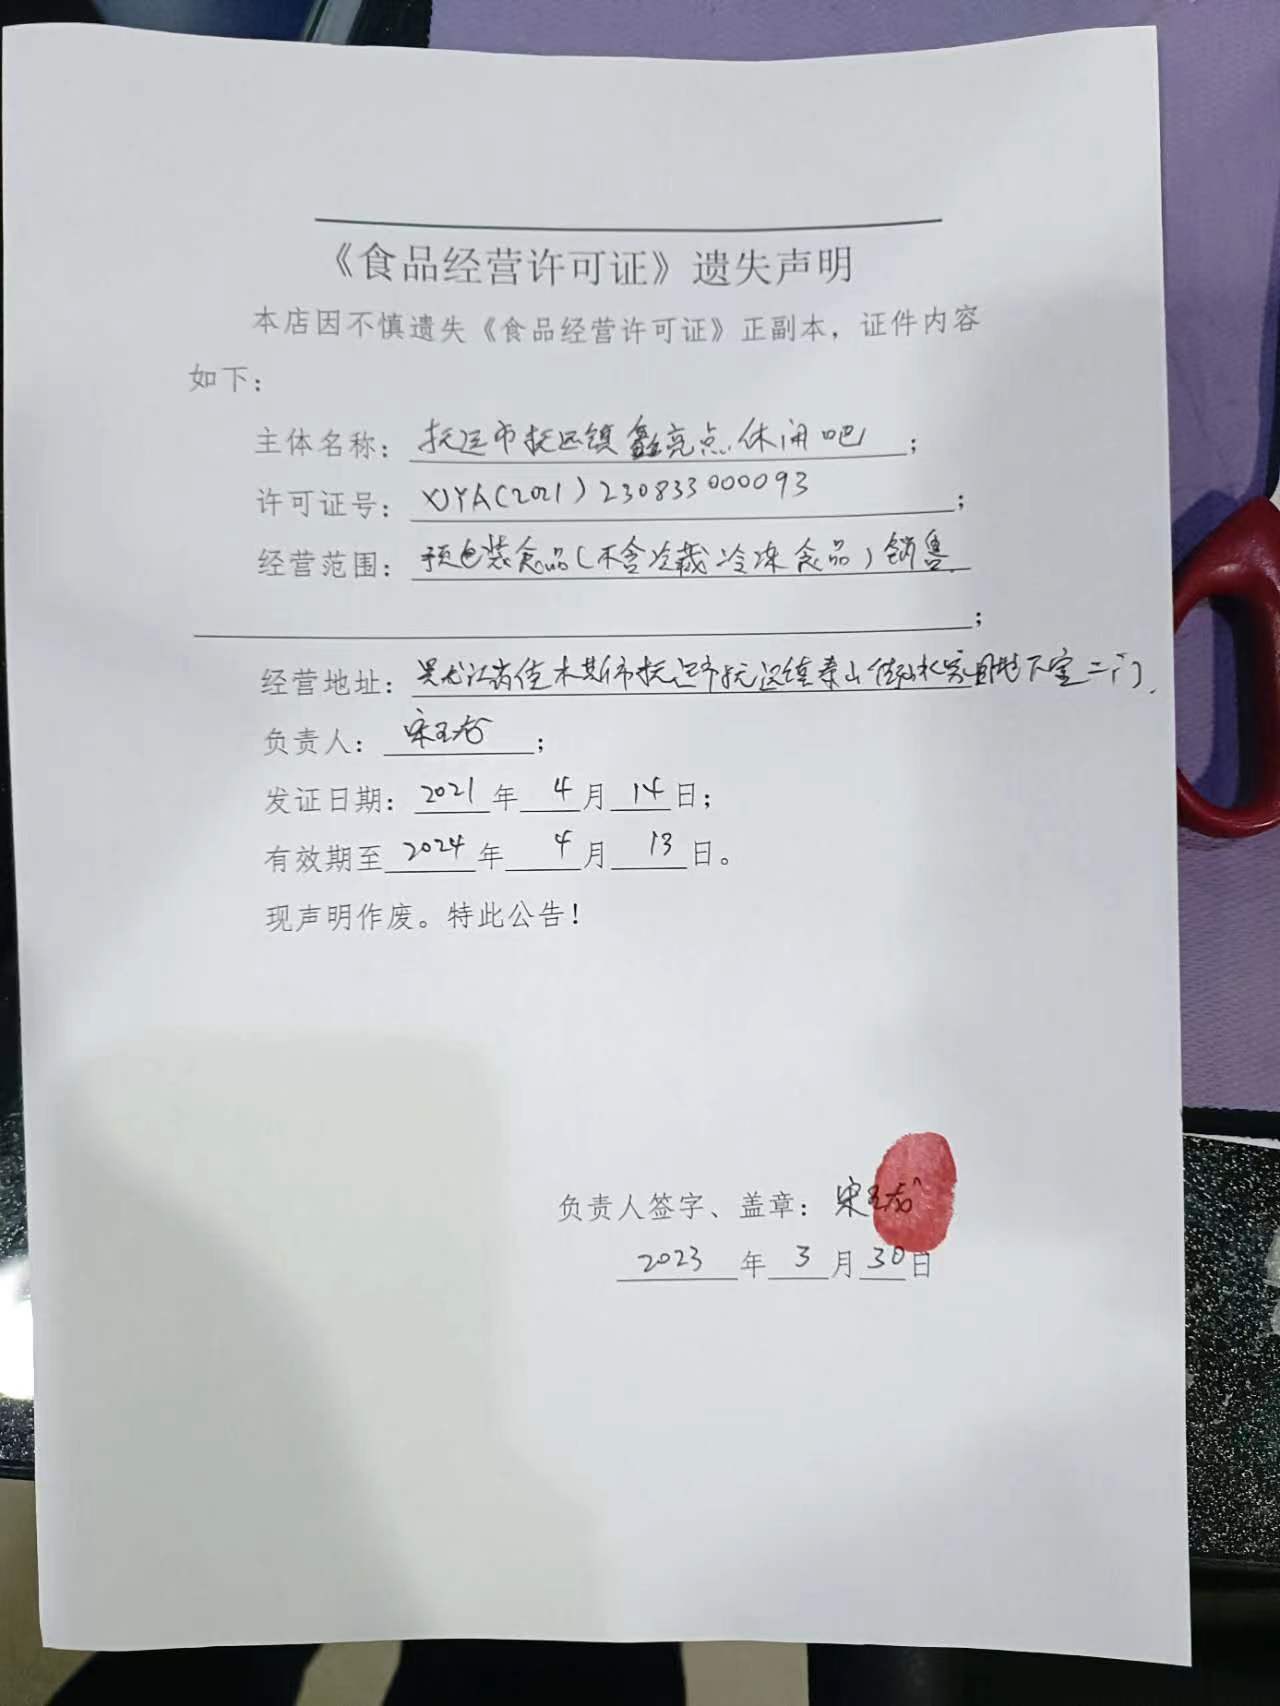 《食品经营许可证》遗失声明
本店因不慎遗失《食品经营许可证》正副本，证件内容
如下：
主体名称：抚远市抚远镇鑫亮点休闲吧；
许可证号：XJYA(2021)230833000093；
经营范围：预包装食品(不含冷藏冷冻食品)销售
；
经营地址：黑龙江省佳木斯市抚远市抚远镇 山街 地下室二门.
负责人：宋玉龙；
发证日期：2021年4月14日；
有效期至2024年4月13日。
现声明作废。特此公告！
负责人签字、盖章：宋玉龙
2023年3月30日